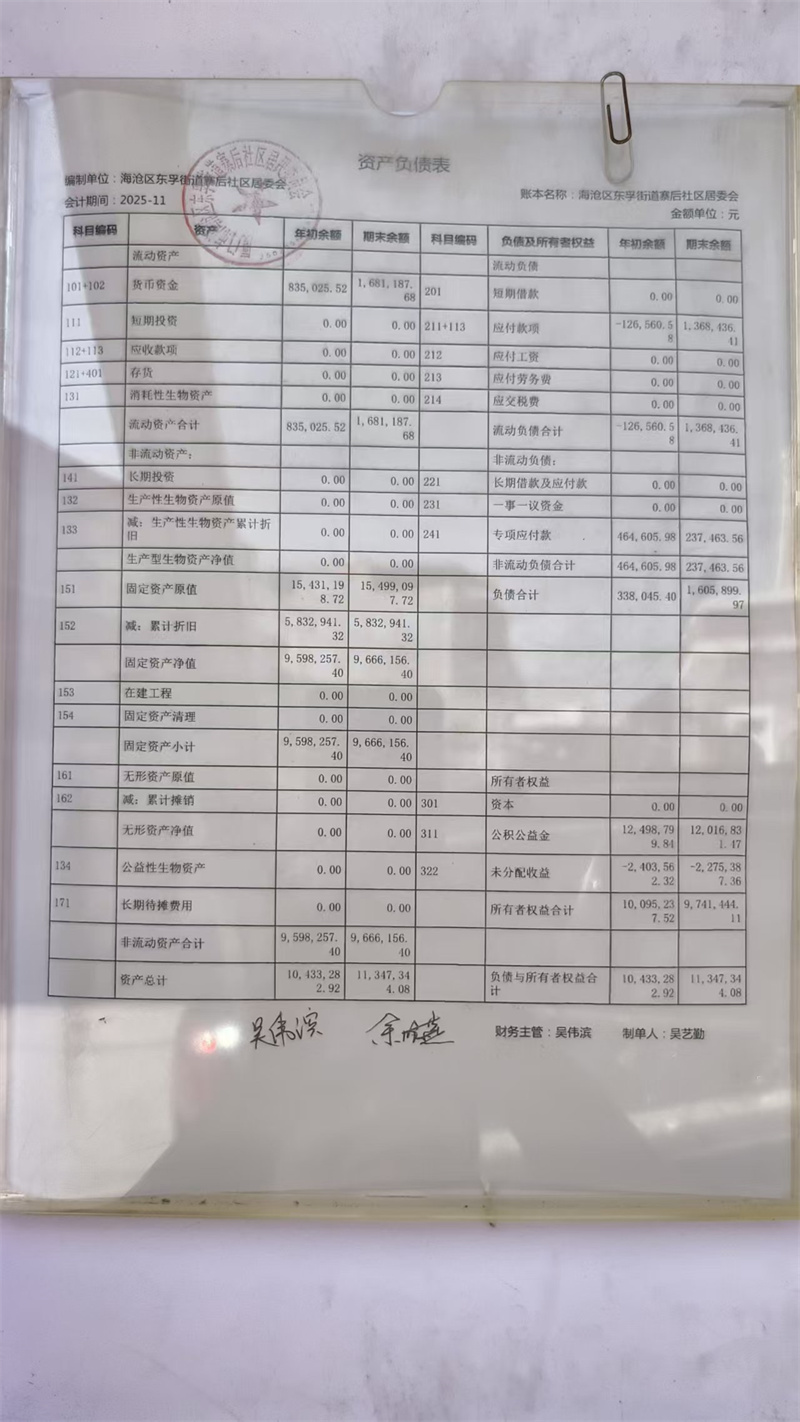 资产负债表
编制单位：海沧区东孚街道寨后社区居委会
账本名称：海沧区东孚街道寨后社区居委会
会计期间：2025-11
金额单位：元
科目编码 资产 年初余额 期末余额 科目编码 负债及所有者权益 年初余额 期末余额
流动资产 流动负债
101+102 货币资金 835,025.52 1,681,187.68 201 短期借款 0.00 0.00
111 短期投资 0.00 0.00 211+113 应付款项 -126,560.58 1,368,436.41
112+113 应收款项 0.00 0.00 212 应付工资 0.00 0.00
121+401 存货 0.00 0.00 213 应付劳务费 0.00 0.00
131 消耗性生物资产 0.00 0.00 214 应交税费 0.00 0.00
流动资产合计 835,025.52 1,681,187.68 流动负债合计 -126,560.58 1,368,436.41
非流动资产： 非流动负债：
141 长期投资 0.00 0.00 221 长期借款及应付款 0.00 0.00
132 生产性生物资产原值 0.00 0.00 231 一事一议资金 0.00 0.00
133 减：生产性生物资产累计折旧 0.00 0.00 241 专项应付款 464,605.98 237,463.56
生产型生物资产净值 0.00 0.00 非流动负债合计 464,605.98 237,463.56
151 固定资产原值 15,431,198.72 15,499,097.72 负债合计 338,045.40 1,605,899.97
152 减：累计折旧 5,832,941.32 5,832,941.32
固定资产净值 9,598,257.40 9,666,156.40
153 在建工程 0.00 0.00
154 固定资产清理 0.00 0.00
固定资产小计 9,598,257.40 9,666,156.40
161 无形资产原值 0.00 0.00 所有者权益
162 减：累计摊销 0.00 0.00 301 资本 0.00 0.00
无形资产净值 0.00 0.00 311 公积公益金 12,498,799.84 12,016,831.47
134 公益性生物资产 0.00 0.00 322 未分配收益 -2,403,562.32 -2,275,387.36
171 长期待摊费用 0.00 0.00 所有者权益合计 10,095,237.52 9,741,444.11
非流动资产合计 9,598,257.40 9,666,156.40
资产总计 10,433,282.92 11,347,344.08 负债与所有者权益合计 10,433,282.92 11,347,344.08
吴伟滨 财务主管：吴伟滨 制单人：吴艺勤